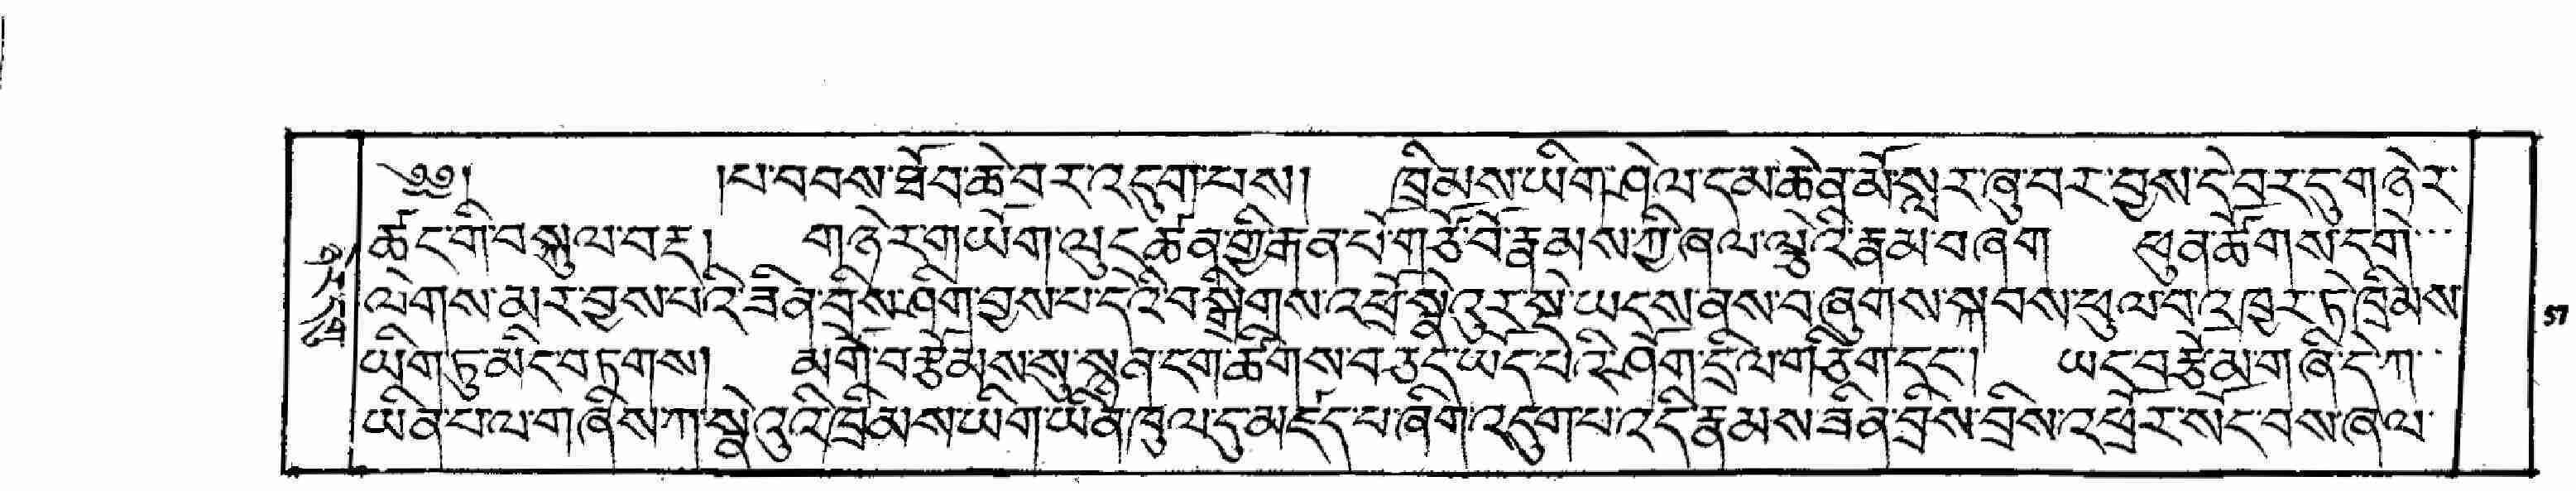 ༄༅། །པ་བབས་ཐོབ་ཆེ་བར་འདུག་པས། ཁྲིམས་ཡིག་ཤེལ་དམ་ཆེན་མོ་སླར་ཞུ་བར་བྱས་དེ་བར་དུ་གཉེར་
ཚང་གི་བསྐུལ་བརྡ། གཉེར་གཡོག་ལུང་ཚན་གྱི་རྒན་པོ་གཙོ་བོ་རྣམས་ཀྱི་ཞལ་ལྟེའི་རྣམ་བཞག ཕུན་ཚོགས་དགེ་
ལེགས་མར་བྱས་པའི་ཟིན་བྲིས་ཤིག་བྱས་པ་དེའི་བསྒྲིགས་འཕྲོ་སྣེའུར་སྡེ་ཡངས་ནས་བཞུགས་སྐབས་ཕུལ་བ་འཁྱར་ཏེ་ཁྲིམས་
ཡིག་ཏུ་མིང་བཏགས། མགོ་བརྩོམས་སུ་སྙན་ངག་ཚིགས་བཅད་ཡོད་པའི་ཤོག་དྲིལ་གཅིག་དང་། ཡང་བརྩེ་མ་གཞི་དེ་ཀ་
ཡིན་པ་ལ་གཞིས་ཀ་སྣེའུའི་ཁྲིམས་ཡིག་ཡིན་ཁུལ་དུ་མཛད་པ་ཞིག་འདུག་པ་འདི་རྣམས་ཟིན་བྲིས་བྲིས་འཕྲོར་སོང་བས་ཞལ་
57